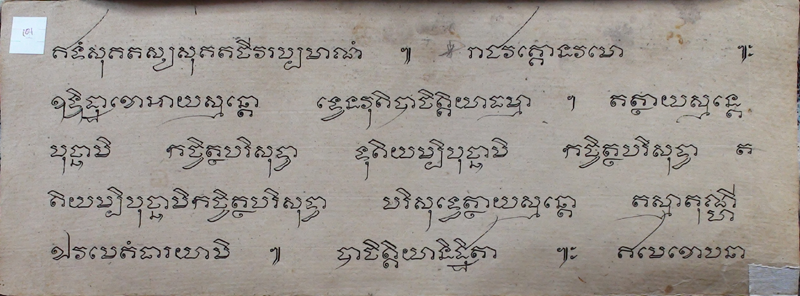 តទំសុគតស្សសុគតចីវរប្បមាណំ ៕ រាជវគ្គោនវមោ ៕
ឧទ្ទិដ្ឋាខោអាយស្មន្តោ ទ្វេនវុតិបាចិត្តិយាធម្មា ។ តត្ថាយស្មន្តេ
បុច្ឆាមិ កច្ចិត្ថបរិសុទ្ធា ទុតិយម្បិបុច្ឆាមិ កច្ចិត្ថបរិសុទ្ធា ត
តិយម្បិបុច្ឆាមិកច្ចិត្ថបរិសុទ្ធា បរិសុទ្ធេត្ថាយស្មន្តោ តស្មាតុណ្ហី
ឯវមេតំធារយាមិ ៕ បាចិត្តិយានិដ្ឋិតា ៕ ឥមេខោបនា